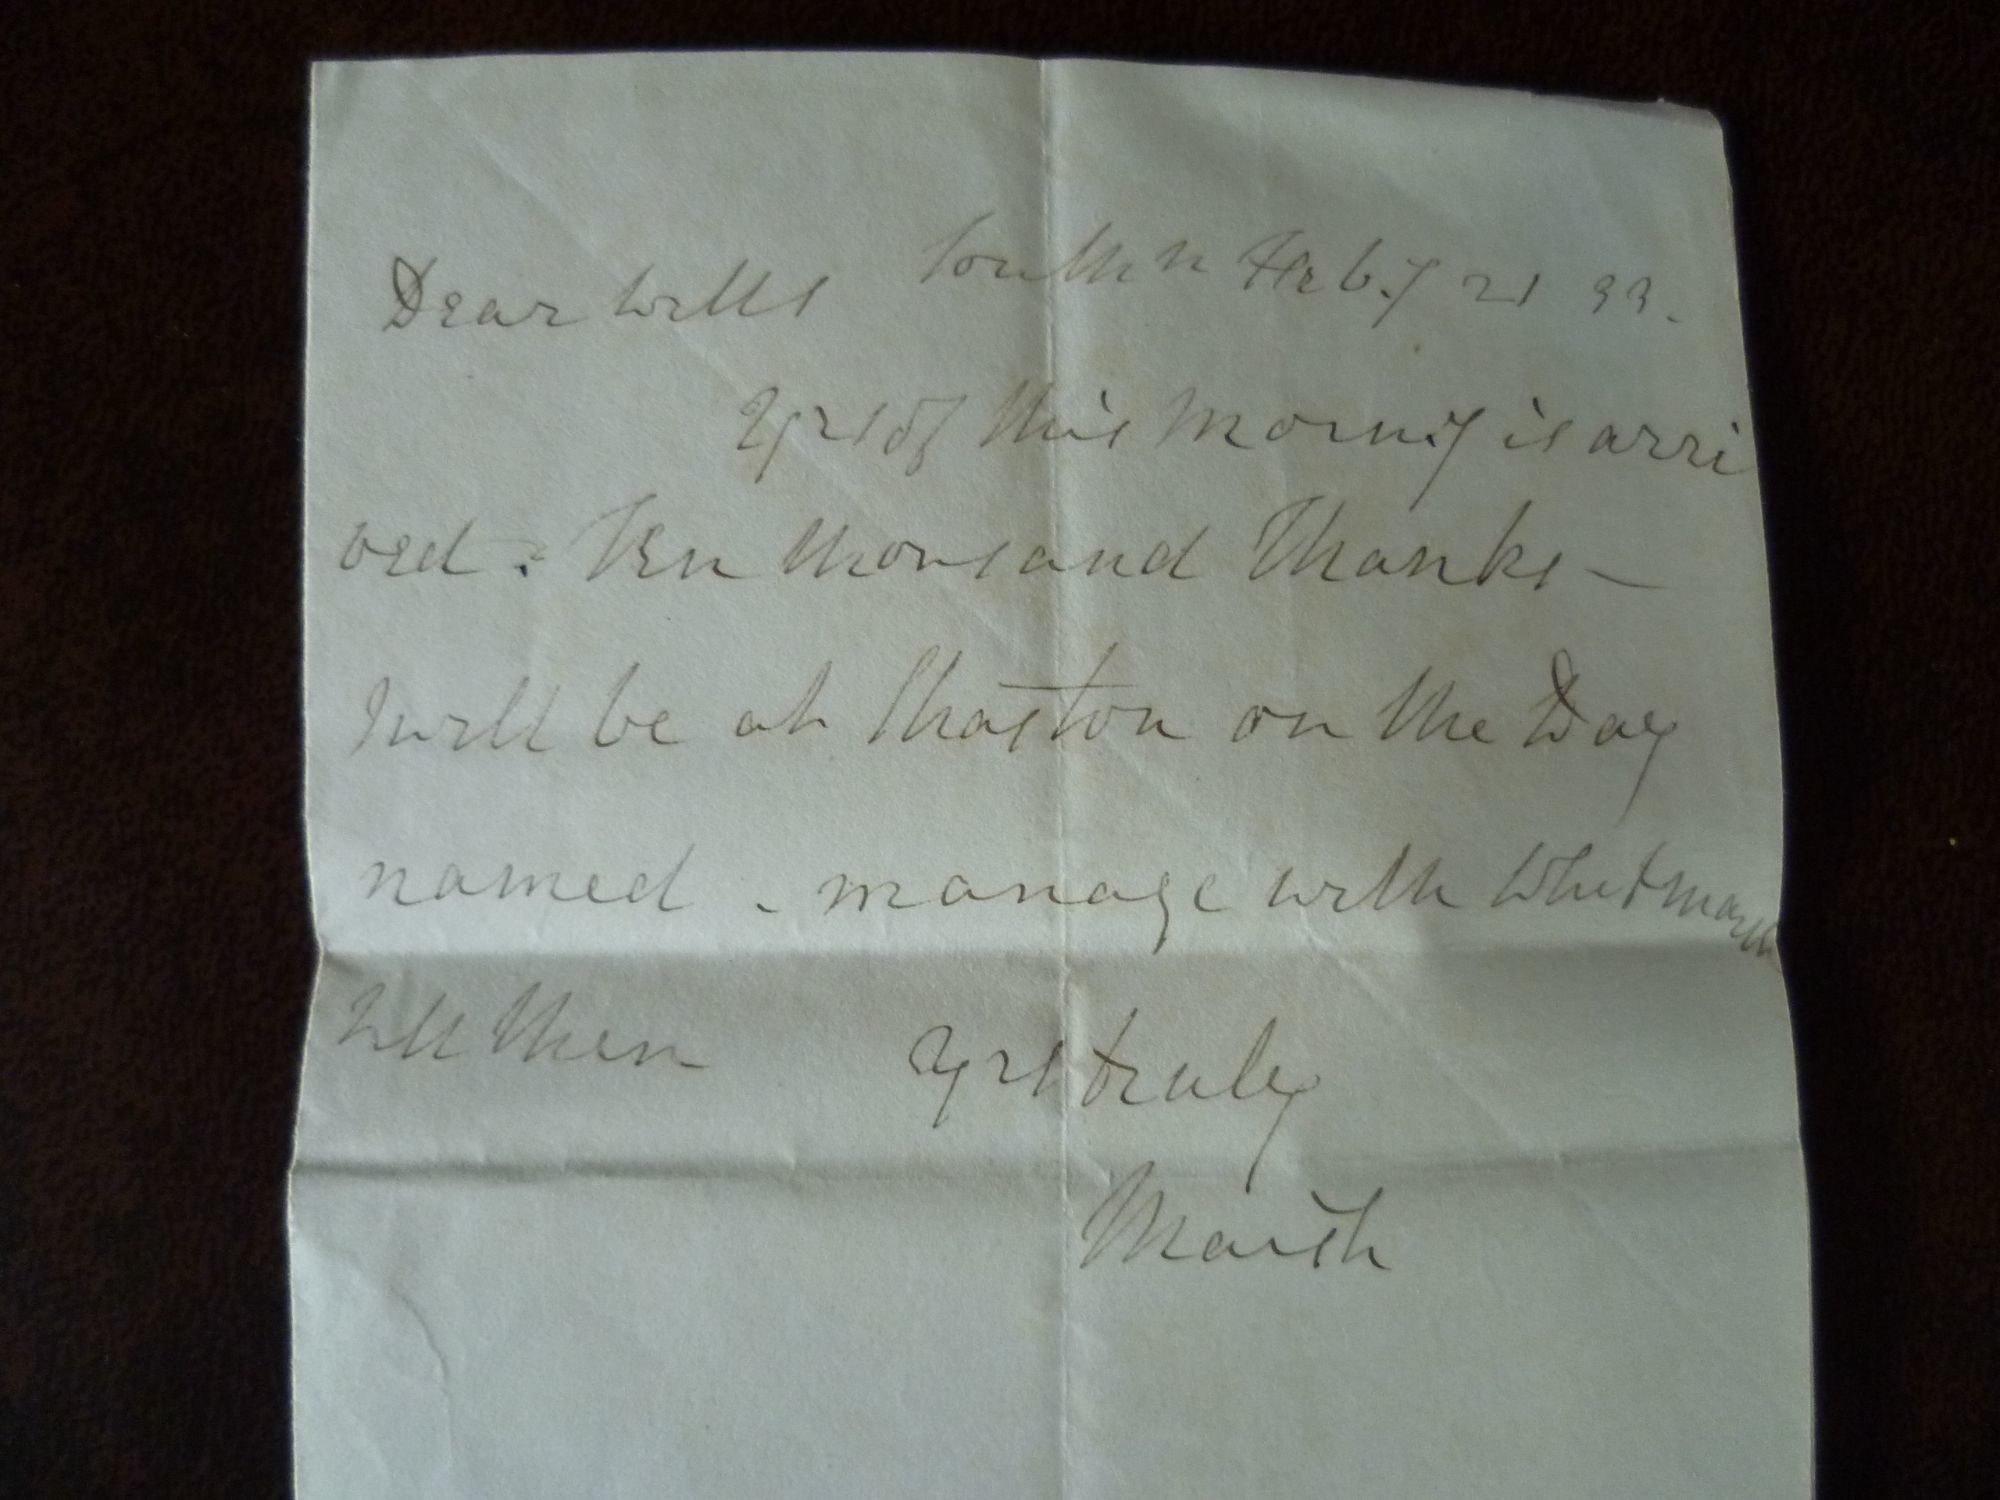 Dear Wills South'n Feb.y 21 33.
Yrs of this Morni'g is arri
ved. Ten thousand Thanks –
I will be at Shaston on the Day
named. manage with Whitmarsh
till then Yrs truly
Marsh